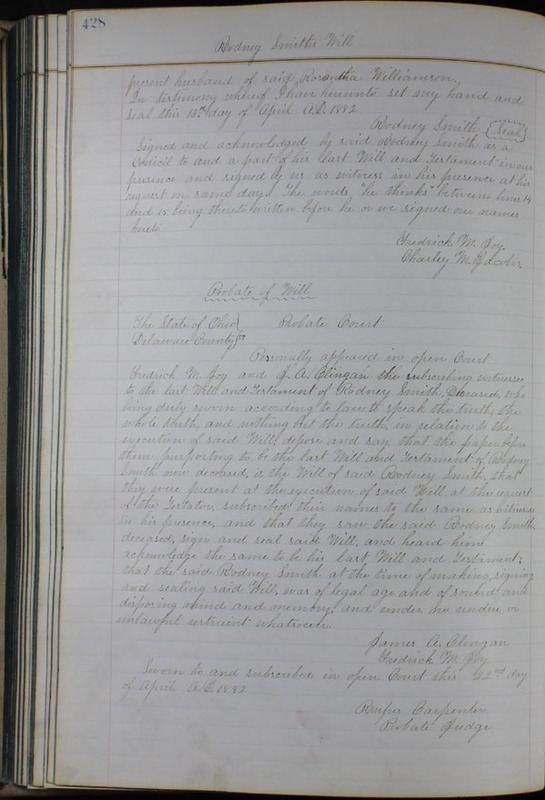 428
Rodney Smiths Will
present husband of said Rosantha Williamson.
In testimony whereof I have hereunto set my hand and
seal this 15th day of April A.D. 1882
Rodney Smith (Seal)
Signed and acknowledged by said Rodney Smith as a
Codicil to and a part of his last Will and Testament in our
presence and signed by us as witness in his presence at his
request on same day. The words "he thinks" between lines 14
and 15 being thereto written before he or we signed our names
hereto
Fredrick M. Joy.
Charley M. Jacobs.
Probate of Will
The State of Ohio
Delaware County ss Probate Court
Personally appeared in open Court
Fredrick M. Joy and J. A. Clingan the subscribing witnesses
to the last Will and Testament of Rodney Smith, Deceased, who
being duly sworn according to law to speak the truth, the
whole truth, and nothing but the truth, in relation to the
execution of said Will, depose and say, that the paper before
them purporting to be the last Will and Testament of Rodney
Smith now deceased, is the Will of said Rodney Smith, that
they were present at the execution of said Will at the request
of the Testator, subscribed their names to the same as witnesses
in his presence, and that they saw the said Rodney Smith,
deceased, sign and seal said Will, and heard him
acknowledge the same to be his last Will and Testament;
that the said Rodney Smith at the time of making, signing
and sealing said Will, was of legal age and of sound and
disposing mind and memory, and under no undue or
unlawful restraint whatsoever.
James A. Clingan
Fredrick M. Joy
Sworn to and subscribed in open Court this 22nd day
of April A.D. 1882
Rufus Carpenter
Probate Judge